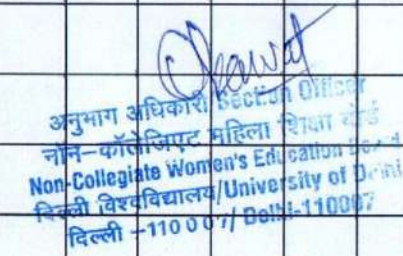 अनुभाग अधिकारी Section Officer
नॉन-कॉलेजिएट महिला शिक्षा बोर्ड
Non-Collegiate Women's Education Board
दिल्ली विश्वविद्यालय/University of Delhi
दिल्ली -110007/ Delhi-110007